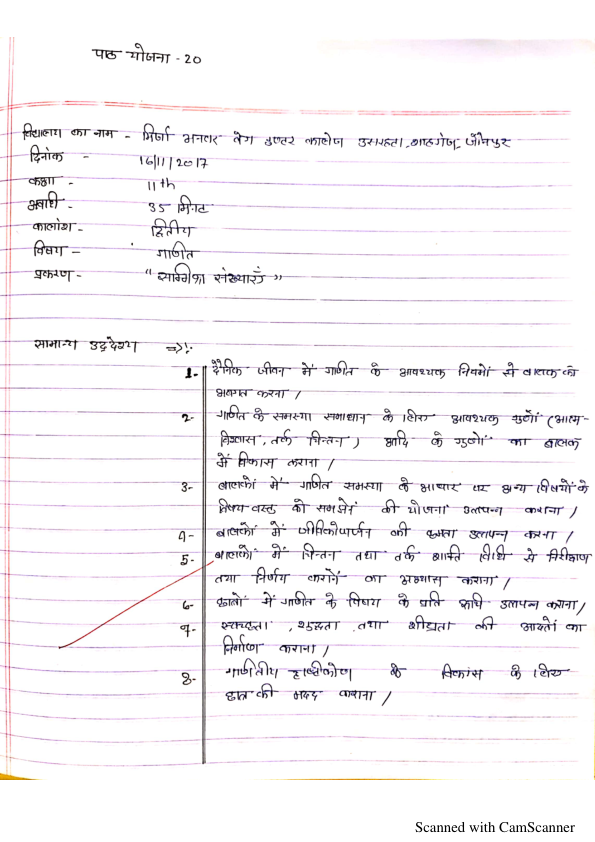 पाठ योजना - 20
विद्यालय का नाम - मिर्जा अनवर बेग इण्टर कालेज उसरहटा, शाहगंज, जौनपुर
दिनांक - 16/11/2017
कक्षा - 11th
अवधि - 35 मिनट
कालांश - द्वितीय
विषय - गणित
प्रकरण - " साम्मिका संख्याएँ "
सामान्य उद्देश्य =>:-
1- दैनिक जीवन में गणित के आवश्यक नियमों से बालक को
अवगत कराना /
2- गणित के समस्या समाधान के लिए आवश्यक गुणों (आत्म-
विश्वास, तर्क चिन्तन ) आदि के गुणों का बालक
में विकास कराना /
3- बालकों में गणित समस्या के आधार पर अन्य विषयों के
विषय-वस्तु को समझने की योजना उत्पन्न कराना /
4- बालकों में जीविकोपार्जन की क्षमता उत्पन्न करना /
5- बालकों में चिन्तन तथा तर्क शक्ति विधि से निरीक्षण
तथा निर्णय करानें का अभ्यास कराना /
6- छात्रों में गणित के विषय के प्रति रूचि उत्पन्न कराना /
7- स्वच्छता, शुद्धता, तथा शीघ्रता की आदतों का
निर्माण कराना /
8- गणितीय दृष्टिकोण के विकांस के लिए
छात्र की मदद कराना /
Scanned with CamScanner